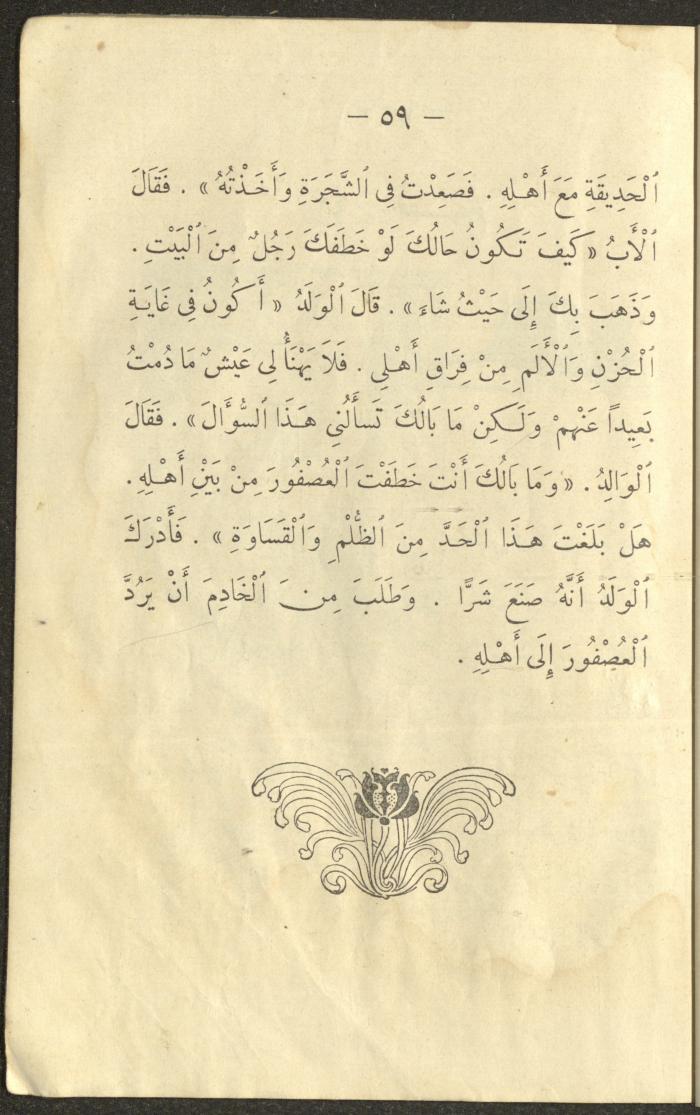 — ٥٩ —
ٱلْحَدِيقَةِ مَعَ أَهْلِهِ . فَصَعِدْتُ فِى ٱلشَّجَرَةِ وَأَخَذْتُهُ » . فَقَالَ
ٱلْأَبُ « كَيفَ تَكُونُ حَالُكَ لَوْ خَطَفَكَ رَجُلٌ مِنَ ٱلْبَيْتِ .
وَذَهَبَ بِكَ إِلَى حَيْثُ شَاءَ » . قَالَ ٱلْوَلَدُ « أَكُونُ فِى غَايَةِ
ٱلْحُزْنِ وَٱلْأَلَمِ مِنْ فِرَاقِ أَهْلِى . فَلَا يَهْنَأُ لِى عَيْشٌ مَا دُمْتُ
بَعِيداً عَنْهِمْ وَلَكِنْ مَا بَالُكَ تَسأَلُنِى هَذَا ٱلسُّؤَالَ » . فَقَالَ
ٱلْوَالِدُ . « وَمَا بَالُكَ أَنْتَ خَطَفْتَ ٱلْعُصْفُورَ مِنْ بَيْنِ أَهْلِهِ .
هَلْ بَلَغْتَ هَذَا ٱلْحَدَّ مِنَ ٱلظُّلْمِ وَٱلْقَسَاوَةِ » . فَأَدْرَكَ
ٱلْوَلَدُ أَنَّهُ صَنَعَ شَرًّا . وَطَلَبَ مِنَ ٱلْخَادِمِ أَنْ يَرُدَّ
ٱلْعُصْفُورَ إِلَى أَهْلِهِ .